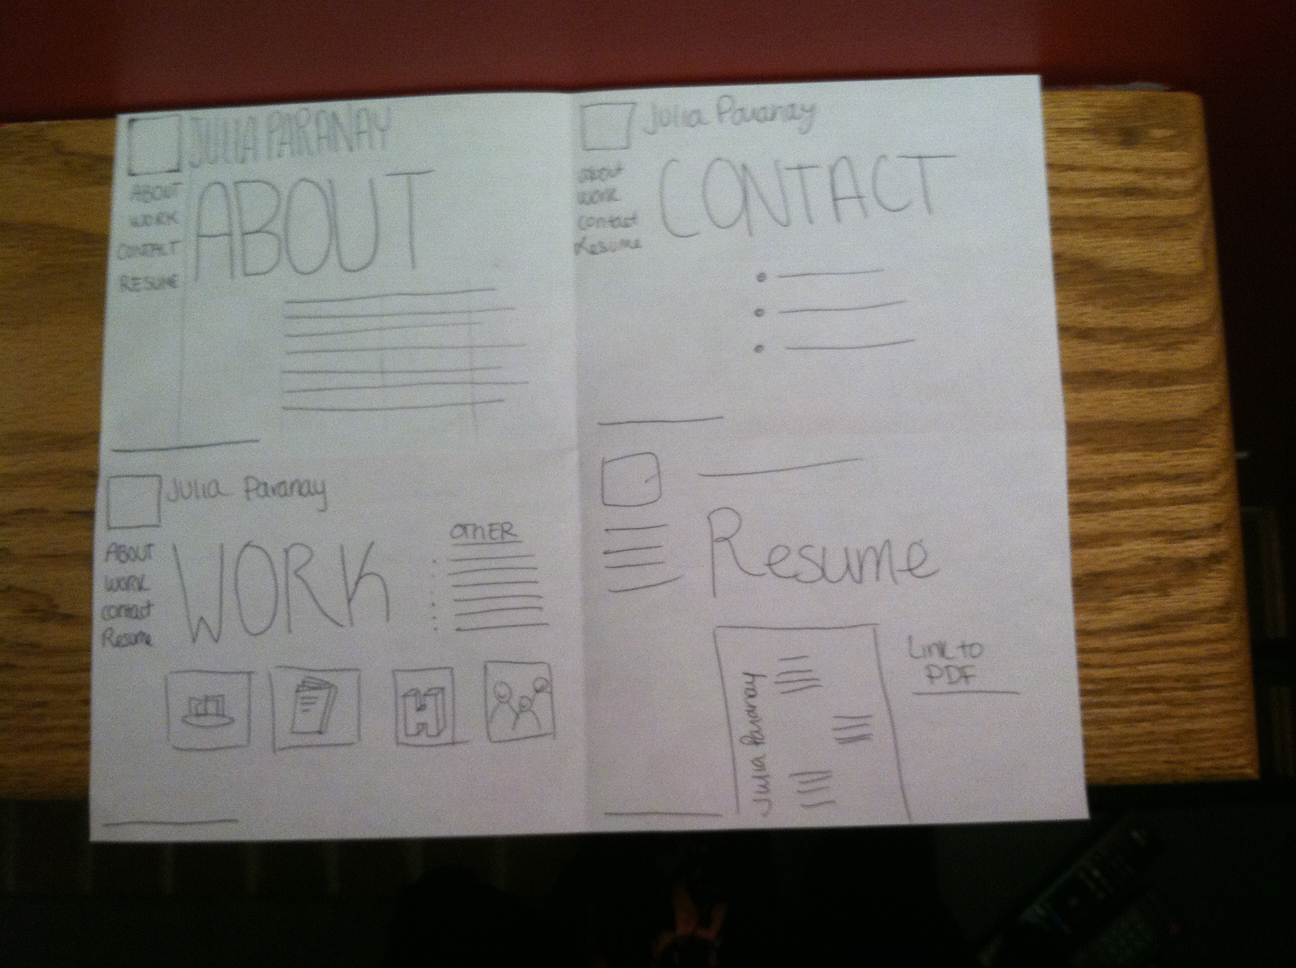 JULIA PARANAY
ABOUT
WORK
CONTACT
RESUME
ABOUT
Julia Paranay
about
work
contact
Resume
CONTACT
Julia Paranay
ABOUT
WORK
contact
Resume
WORK
OTHER
H
Resume
Julia Paranay
Link to
PDF